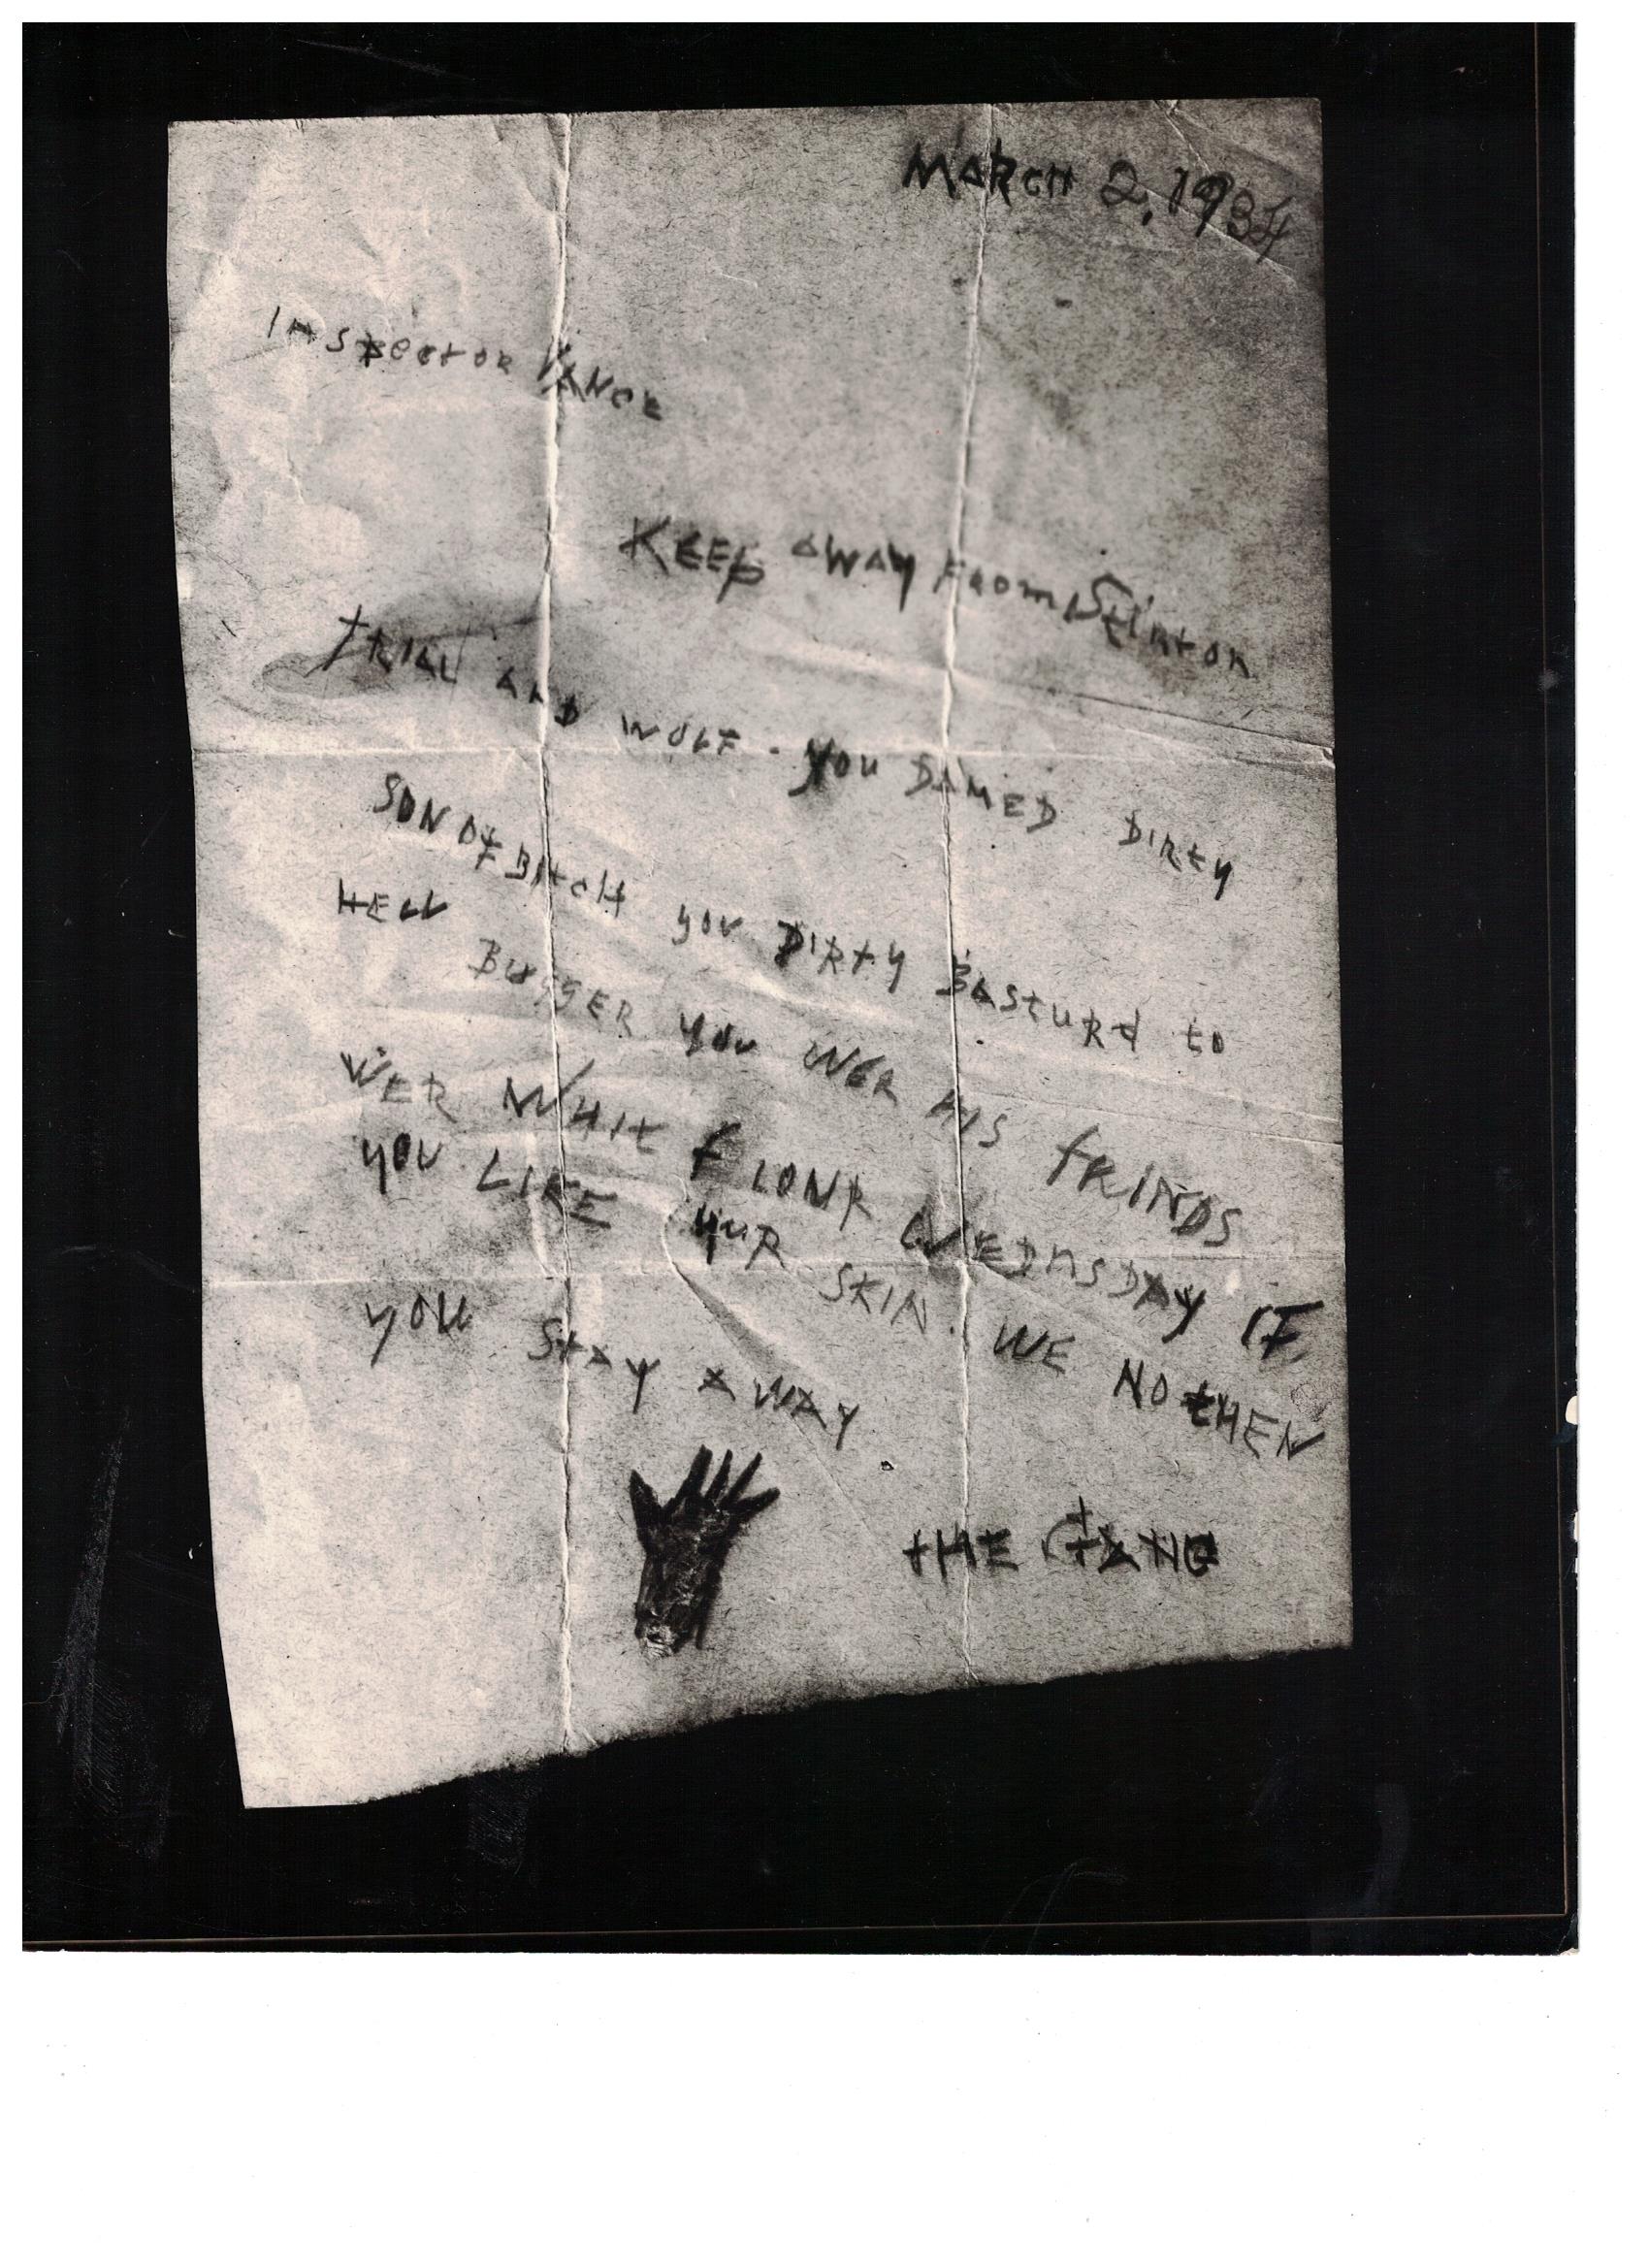 MARCH 2, 1934
INSPECTOR VANCE
KEEP AWAY FROM
TRIAL AND WOLF. YOU DAMED DIRTY
SON OF BITCH YOU DIRTY BASTURD to
HELL BUGGER YOU WER HIS FRINDS
WER WHIT YOU WEDNSDAY IF
YOU LIKE YUR SKIN. WE NO tHEN
YOU StAY AWAY
tHE GANG